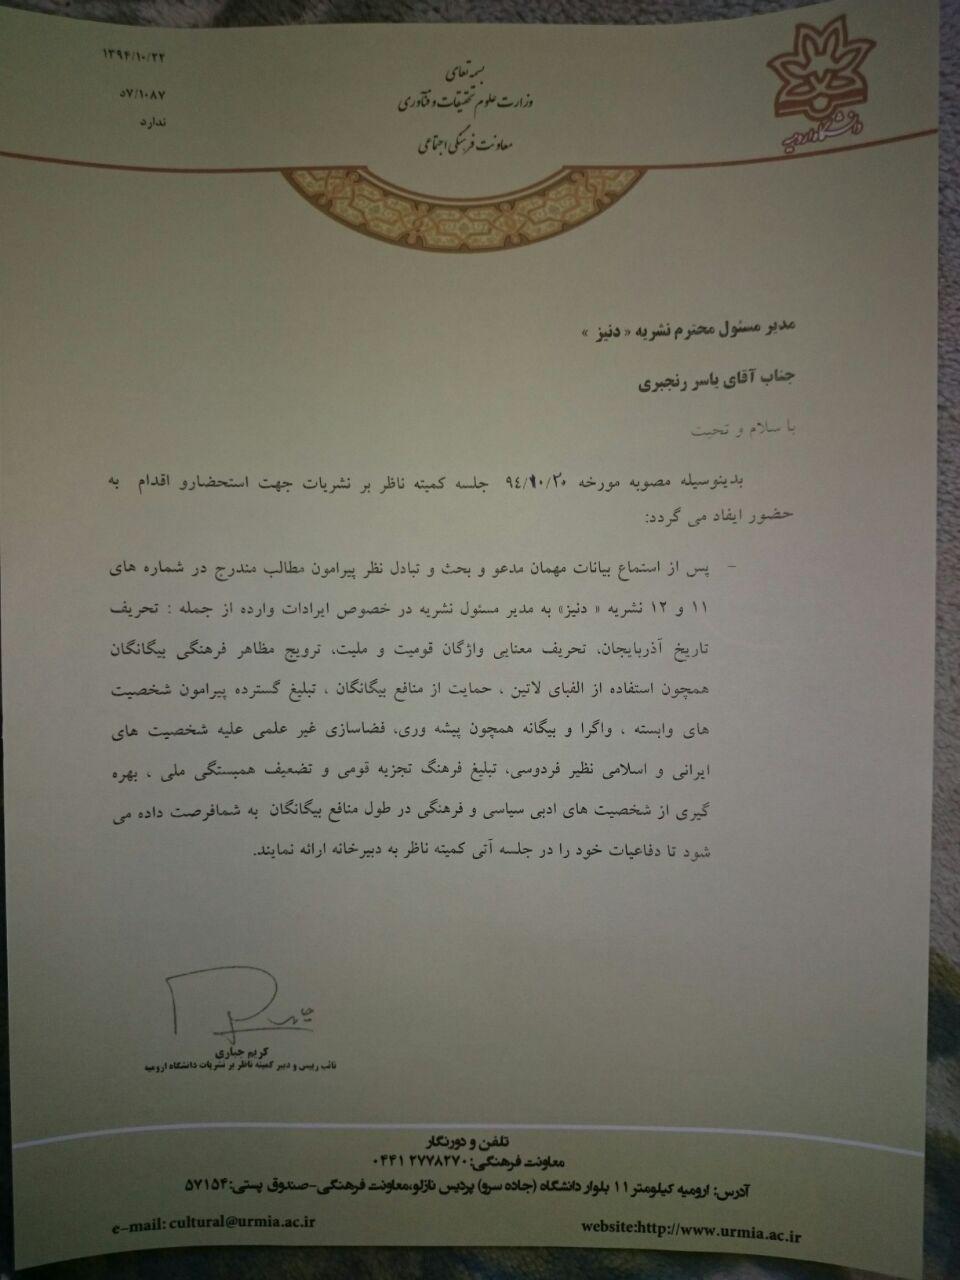 ۱۳۹۴/۱۰/۲۲
۵۷/۱۰۸۷
ندارد
بسمه تعالی
وزارت علوم تحقیقات و فناوری
معاونت فرهنگی اجتماعی
دانشگاه ارومیه
مدیر مسئول محترم نشریه « دنیز »
جناب آقای یاسر رنجبری
با سلام و تحیت
بدینوسیله مصوبه مورخه ۹٤/۱۰/۲۰ جلسه کمیته ناظر بر نشریات جهت استحضارو اقدام به
حضور ایفاد می گردد:
- پس از استماع بیانات مهمان مدعو و بحث و تبادل نظر پیرامون مطالب مندرج در شماره های
۱۱ و ۱۲ نشریه « دنیز» به مدیر مسئول نشریه در خصوص ایرادات وارده از جمله : تحریف
تاریخ آذربایجان، تحریف معنایی واژگان قومیت و ملیت، ترویج مظاهر فرهنگی بیگانگان
همچون استفاده از الفبای لاتین ، حمایت از منافع بیگانگان ، تبلیغ گسترده پیرامون شخصیت
های وابسته ، واگرا و بیگانه همچون پیشه وری، فضاسازی غیر علمی علیه شخصیت های
ایرانی و اسلامی نظیر فردوسی، تبلیغ فرهنگ تجزیه قومی و تضعیف همبستگی ملی ، بهره
گیری از شخصیت های ادبی سیاسی و فرهنگی در طول منافع بیگانگان به شمافرصت داده می
شود تا دفاعیات خود را در جلسه آتی کمیته ناظر به دبیرخانه ارائه نمایند.
کریم جباری
نائب رییس و دبیر کمیته ناظر بر نشریات دانشگاه ارومیه
تلفن و دورنگار
معاونت فرهنگی: ۲۷۷۸۲۷۰ ۰۴۴۱
آدرس: ارومیه کیلومتر ۱۱ بلوار دانشگاه (جاده سرو) پردیس نازلو،معاونت فرهنگی-صندوق پستی: ۵۷۱۵۴
e-mail: cultural@urmia.ac.ir
website:http://www.urmia.ac.ir